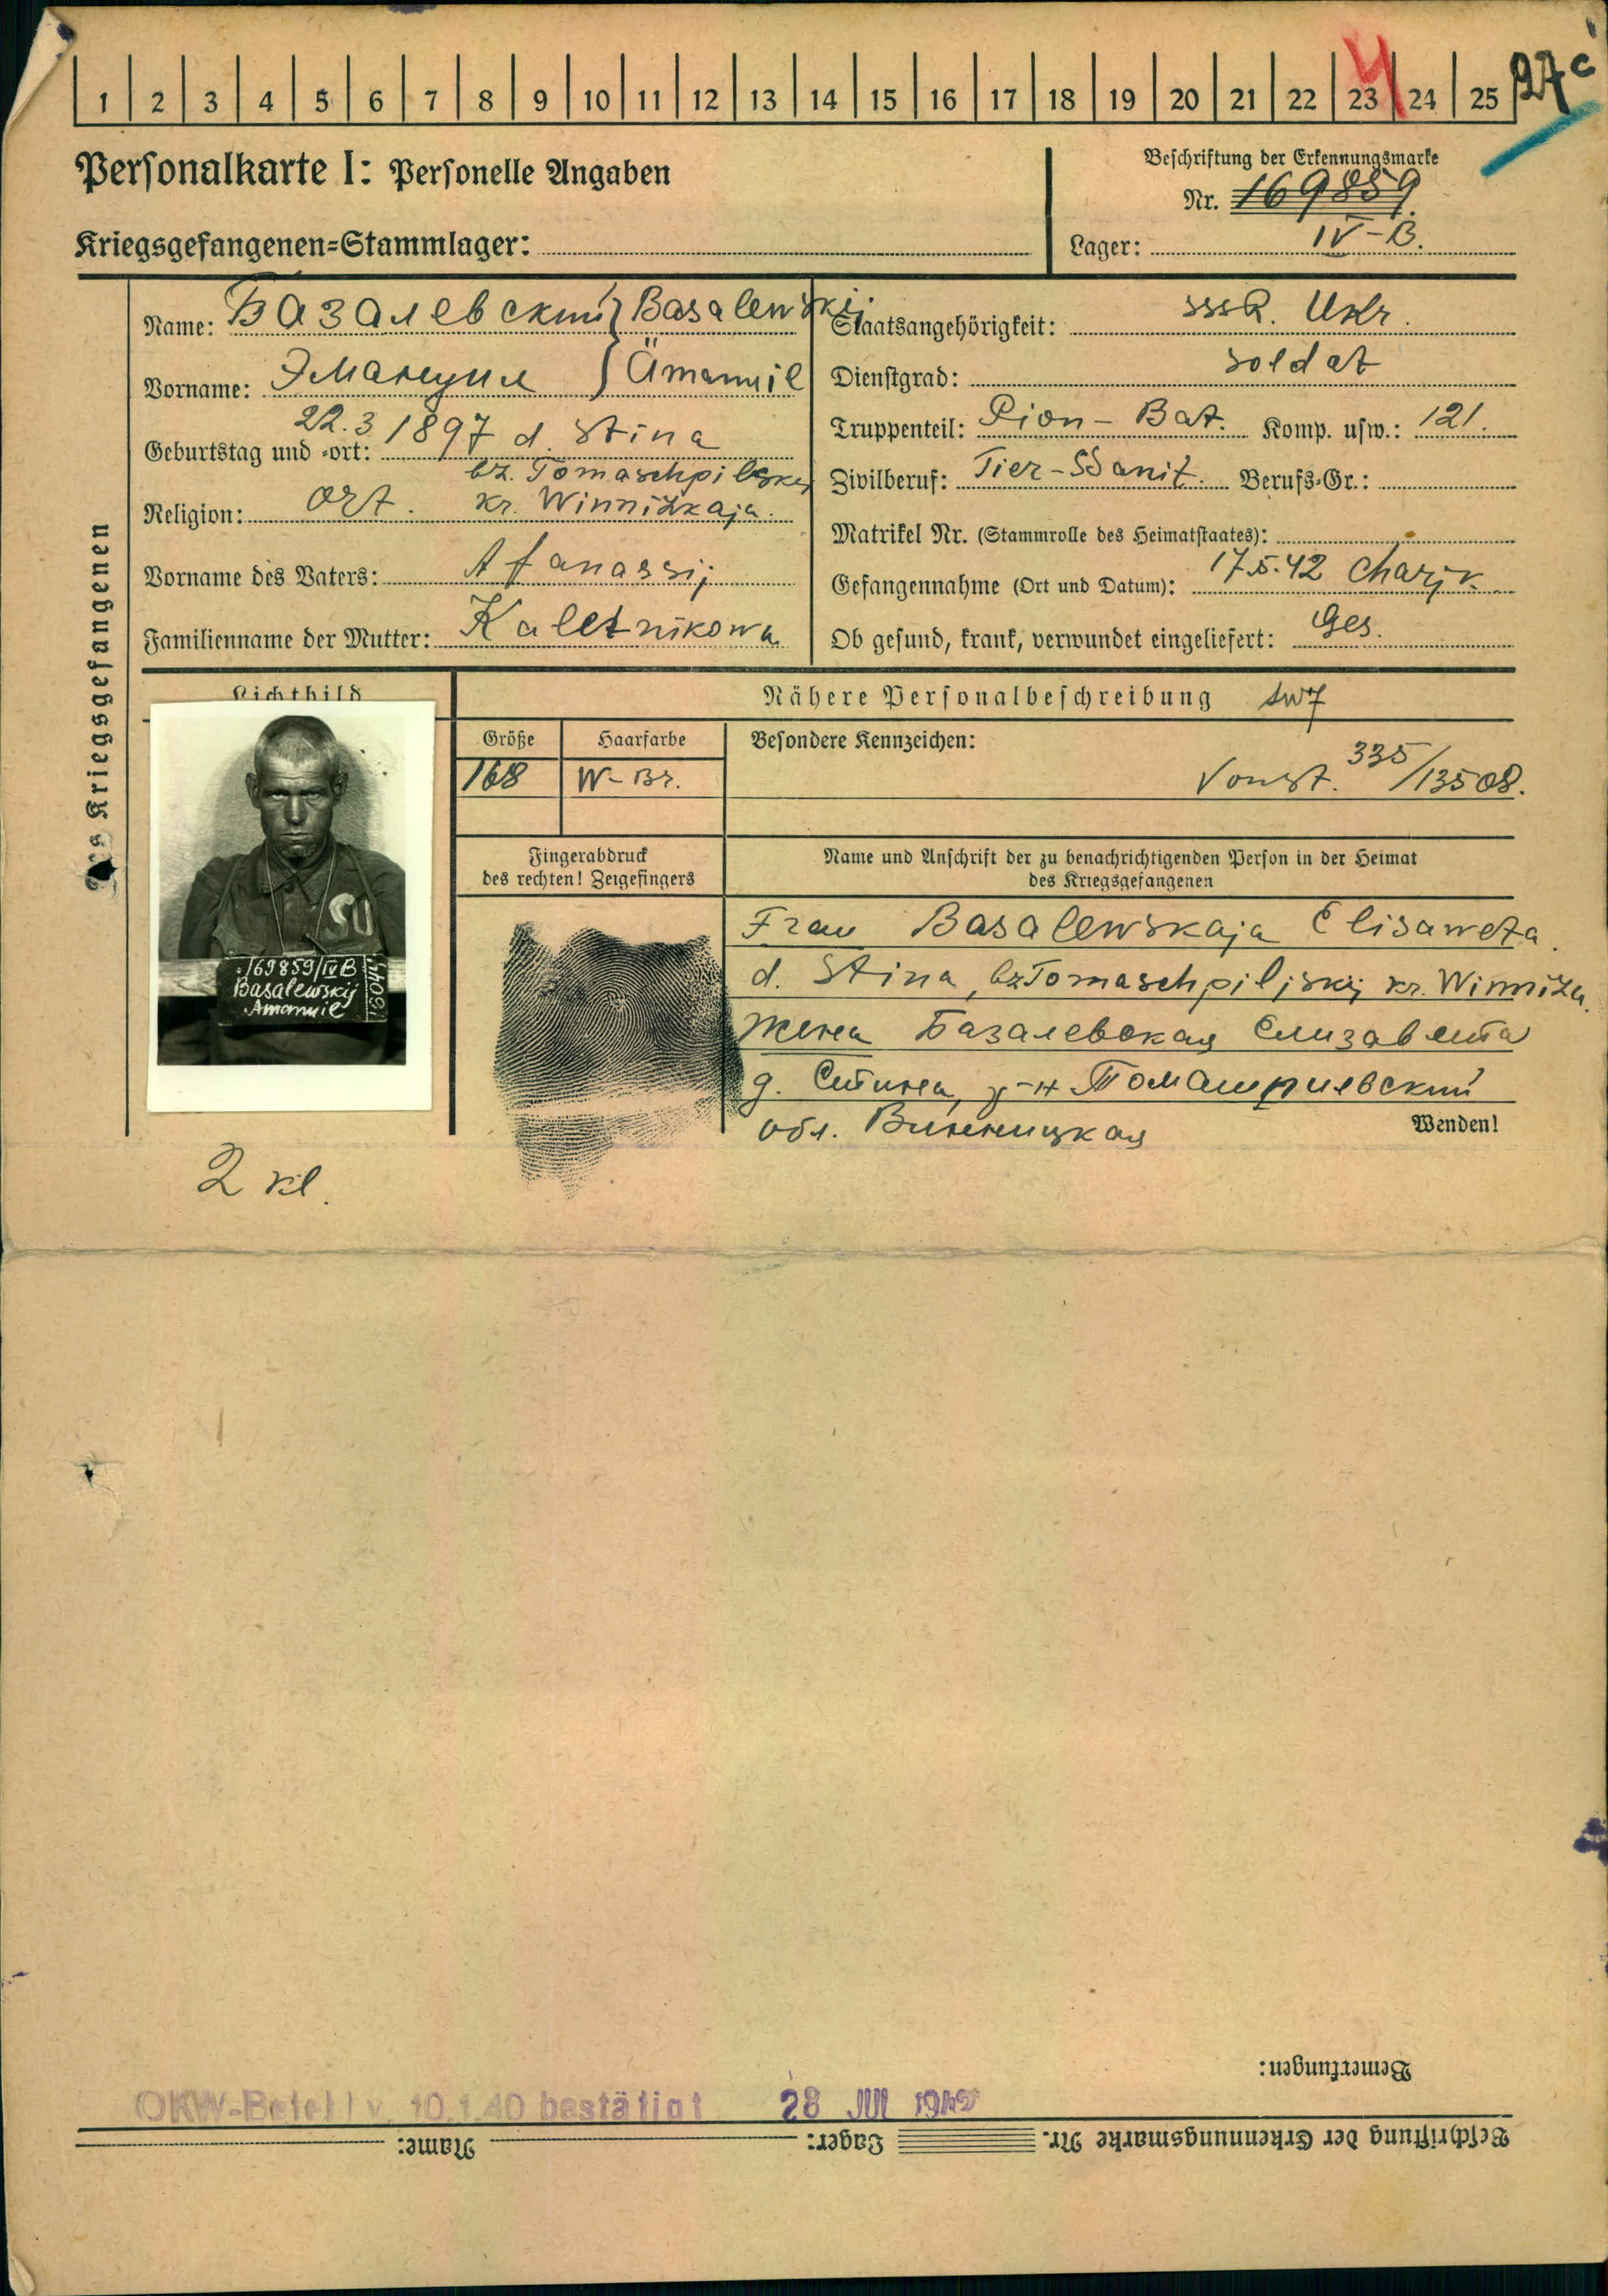 1 2 3 4 5 6 7 8 9 10 11 12 13 14 15 16 17 18 19 20 21 22 23 24 25
Personalkarte I: Personelle Angaben
Beschriftung der Erkennungsmarke
Nr. 169859
Kriegsgefangenen=Stammlager:
Lager: IV-B.
Des Kriegsgefangenen
Name: Базалевский } Basalewskij
Vorname: Эмануил } Ämanuil
Geburtstag und -ort: 22.3 1897 d. Stina
bz. Tomaschpilskij
Religion: ort. kr. Winnizkaja.
Vorname des Vaters: Afanassij
Familienname der Mutter: Kaletnikowa
Staatsangehörigkeit: SSSR. Ukr.
Dienstgrad: Soldat
Truppenteil: Pion-Bat. Komp. usw.: 121.
Zivilberuf: Tier-Sanit. Berufs-Gr.:
Matrikel Nr. (Stammrolle des Heimatstaates):
Gefangennahme (Ort und Datum): 17.5.42 Charjk.
Ob gesund, krank, verwundet eingeliefert: Ges.
Lichtbild
Nähere Personalbeschreibung
Größe Haarfarbe Besondere Kennzeichen:
168 W-Br.
335/13508.
Fingerabdruck
des rechten! Zeigefingers
Name und Anschrift der zu benachrichtigenden Person in der Heimat
des Kriegsgefangenen
Frau Basalewskaja Elisaweta.
d. Stina, bz Tomaschpiljskij kr. Winniza.
жена Базалевская Елизавета
д. Стина, р-н Томашпилевский
обл. Винницкая
Wenden!
SU
169859/IV B
Basalewskij
Amanuil
2 kl.
Bemerkungen:
OKW-Befehl v. 10.1.40 bestätigt 28 JUL 1942
Beschriftung der Erkennungsmarke Nr. Lager: Name: